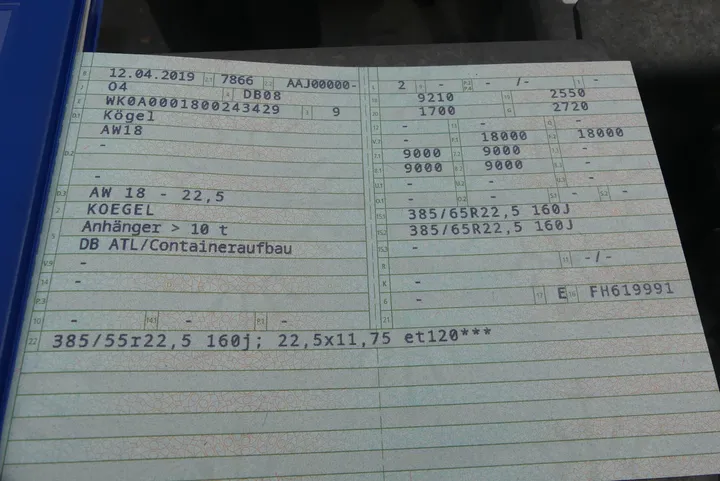 B 12.04.2019 2.1 7866 2.2 AAJ00000-
J 04 4 DB08
E WK0A0001800243429 3 9
D.1 Kögel
AW18
D.2 -
-
D.3 AW 18 - 22,5
2 KOEGEL
5 Anhänger > 10 t
DB ATL/Containeraufbau
V.9 -
14 -
P.3
10 - 14.1 - P.1 -
22 385/55r22,5 160j; 22,5x11,75 et120***
L 2 9 - P.2 P.4 - / - T -
18 9210 19 2550
20 1700 G 2720
12 - 13 - Q -
V.7 - F.1 18000 F.2 18000
7.1 9000 7.2 9000 7.3 -
8.1 9000 8.2 9000 8.3 -
U.1 - U.2 - U.3 -
O.1 - O.2 - S.1 - S.2 -
15.1 385/65R22,5 160J
15.2 385/65R22,5 160J
15.3 -
R - 11 -/-
K -
6 - 17 E 16 FH619991
21